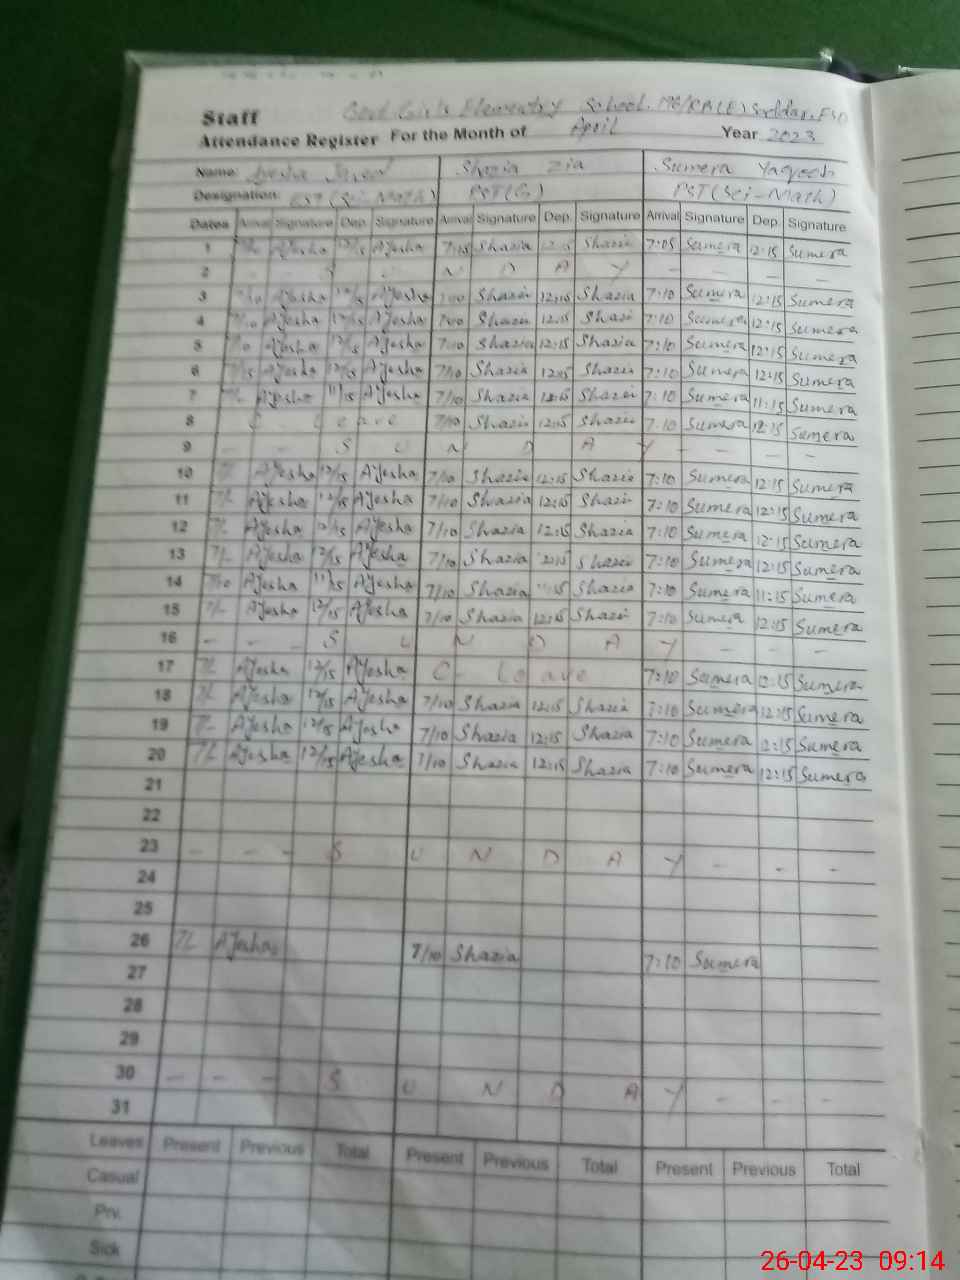 Staff Govt Girls Elementry School
Attendance Register For the Month of April Year 2023
Name: Ayesha Shazia Zia Sumera Yaqoob
Designation: EST (Sci-Math) PST(G) PST(Sci-Math)
Dates Arrival Signature Dep. Signature Arrival Signature Dep. Signature Arrival Signature Dep. Signature
1 Ayesha 12/15 Ayesha 7:15 Shazia 12:15 Shazia 7:05 Sumera 12:15 Sumera
2 - - S U N D A Y - - -
3 7/10 Ayesha 12/15 Ayesha 7/10 Shazia 12:15 Shazia 7:10 Sumera 12:15 Sumera
4 7/10 Ayesha 12/15 Ayesha 7/10 Shazia 12:15 Shazia 7:10 Sumera 12:15 Sumera
5 Ayesha 12/15 Ayesha 7/10 Shazia 12:15 Shazia 7:10 Sumera 12:15 Sumera
6 7/15 Ayesha 12/15 Ayesha 7/10 Shazia 12:15 Shazia 7:10 Sumera 12:15 Sumera
7 Ayesha 11/15 Ayesha 7/10 Shazia Shazia 7:10 Sumera 11:15 Sumera
8 C Leave 7/10 Shazia 12:15 Shazia 7:10 Sumera 12:15 Sumera
9 - - S U N D A Y - - -
10 7/- Ayesha 12/15 Ayesha 7/10 Shazia 12:15 Shazia 7:10 Sumera 12:15 Sumera
11 7/- Ayesha 12/15 Ayesha 7/10 Shazia 12:15 Shazia 7:10 Sumera 12:15 Sumera
12 7/- Ayesha 12/15 Ayesha 7/10 Shazia 12:15 Shazia 7:10 Sumera 12:15 Sumera
13 7/- Ayesha 12/15 Ayesha 7/10 Shazia 12:15 Shazia 7:10 Sumera 12:15 Sumera
14 7/10 Ayesha 11/15 Ayesha 7/10 Shazia 11:15 Shazia 7:10 Sumera 11:15 Sumera
15 7/- Ayesha 12/15 Ayesha 7/10 Shazia 12:15 Shazia 7:10 Sumera 12:15 Sumera
16 - - S U N D A Y - - -
17 7/- Ayesha 12/15 Ayesha C- Leave 7:10 Sumera 12:15 Sumera
18 7/- Ayesha 12/15 Ayesha 7/10 Shazia 12:15 Shazia 7:10 Sumera 12:15 Sumera
19 7/- Ayesha 12/15 Ayesha 7/10 Shazia 12:15 Shazia 7:10 Sumera 12:15 Sumera
20 7/- Ayesha 12/15 Ayesha 7/10 Shazia 12:15 Shazia 7:10 Sumera 12:15 Sumera
21
22
23 - - - S U N D A Y - - -
24
25
26 7/- Ayesha 7/10 Shazia 7:10 Sumera
27
28
29
30 - - - S U N D A Y - - -
31
Leaves Present Previous Total Present Previous Total Present Previous Total
Casual
Prv.
Sick
26-04-23 09:14